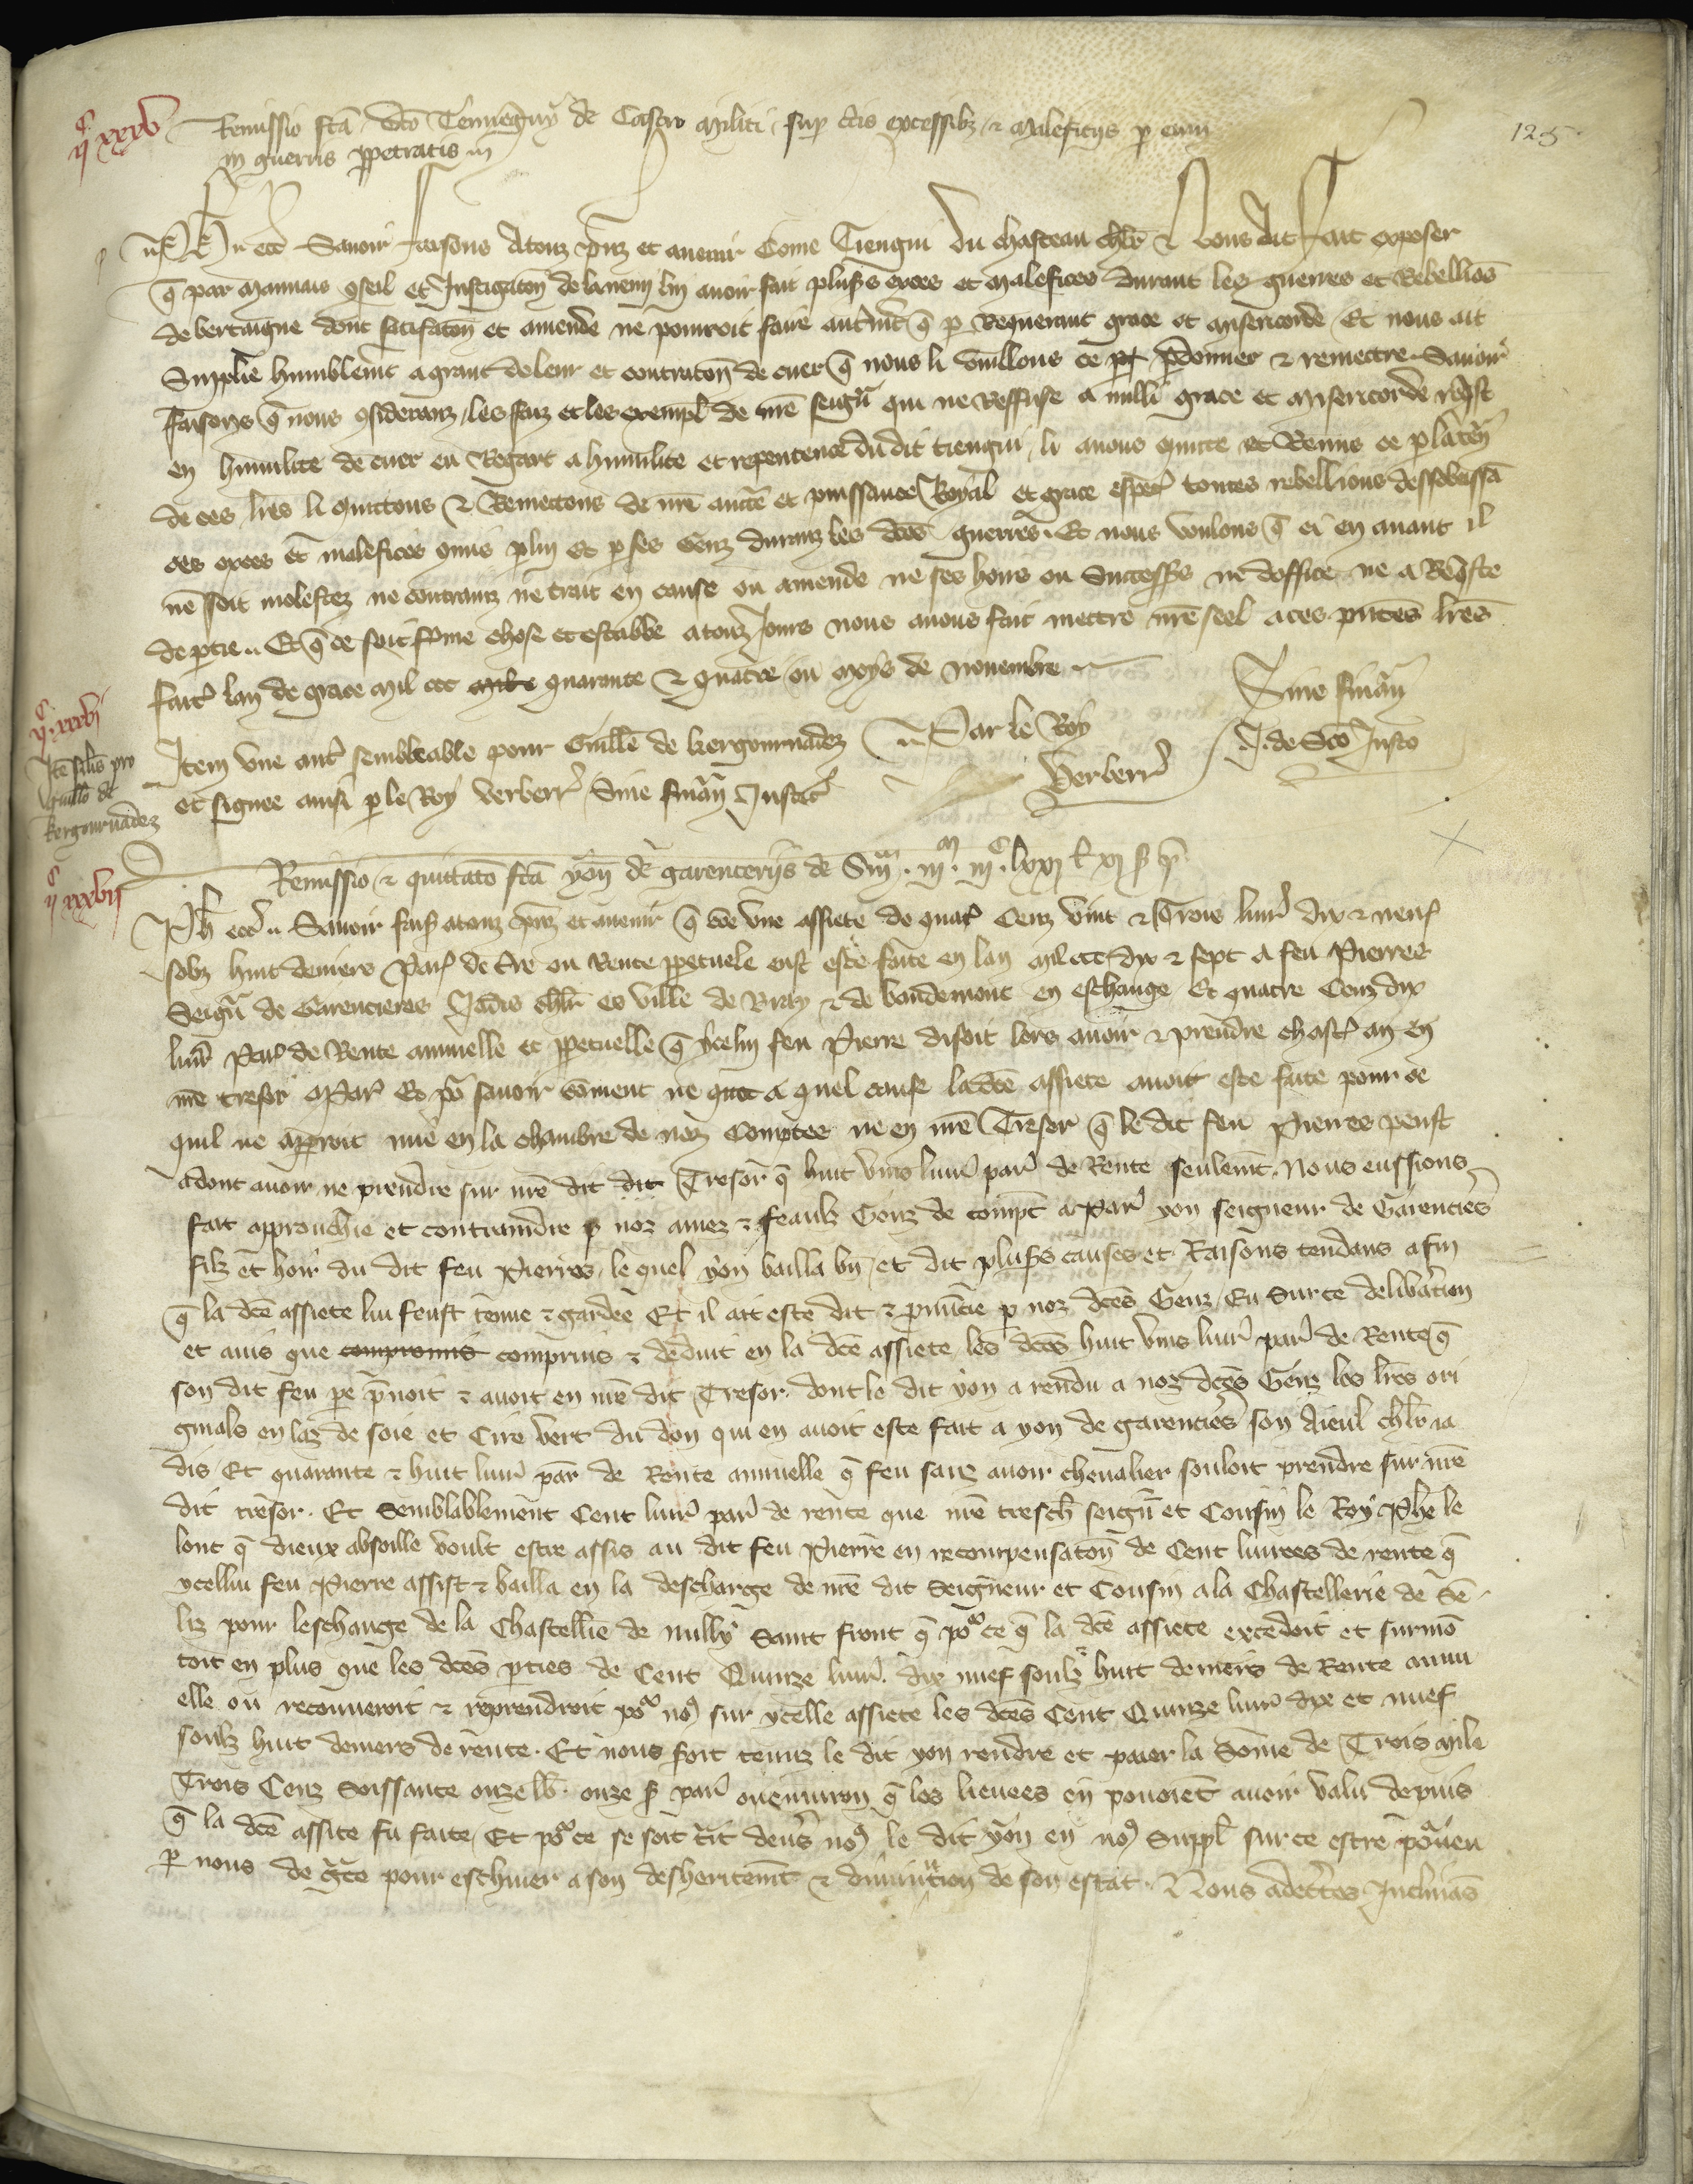 IIᶜ XXXV
Remissio fca dco Tenneguy de Castro militi sup ctis excessibz ⁊ maleficijs p eum
in guerris ppetratis
125
Ph etc Savoir faisons atouz psenz et avenir Come Tiengui du chasteau chlr ⁊ Nous ait fait exposer
q par mauvais 9seil et Instigaton de lanemi lui avoir fait plusrs exces et malefices durant les guerres et Rebellios
de bertaigne dont satisfaton et amende ne pourroit faire autmt q p Requerant grace et misericorde Et nous ait
Supplie humblemt a grant doleur et contraton de cuer q nous li vuillons ce pdonner ⁊ remettre Savoir
faisons q nous 9siderauz les faiz et les exempl de nre seignr qui ne Reffuse a nulli grace et misericorde reqst
en humilite de cuer eu Regart a humilite et repentence du dit tiengui li avons quitte et Remis ⁊ p la ten
de ces lres li quittons ⁊ Remettons de nre aucte et puissance Royal et grace espec toutes rebellions dessobeissa
ces exces et malefices 9mis p lui et p ses Genz duranz les dces guerres Et nous voulons q ci en avant il
ne soit molestez ne contrainz ne trait en cause ou amende ne ses hoirs ou Successrs ne doffice ne a Reqste
de ptie Et q ce soit ferme chose et estable atouz Jours nous avons fait mettre nre seel a ces pntes lres
fait lan de grace mil ccc quarante ⁊ quatre ou moys de novembre
Sine finan
Par le Roy
Verberr
J. de Sco Justo
IIᶜ XXXVI
Ite silis pro
Guillo de
kergournadez
Item une autr semblable pour Guille de kergournadez
et signee ainsi p le Roy verberr Sine finan Justic
IIᶜ XXXVII
Remissio ⁊ quittato fca yon de garencerijs de Sum . iijᵐ . iijᶜ . lxxj £ xj s p
Ph etc Savoir fais atouz psenz et avenir q cde une assiete de quatr Cenz vint ⁊ Trois livr dix ⁊ neuf
solz huit deniers Par de tre ou Rente ppetuele eust este faite en lan mil ccc dix ⁊ sept a feu Pierres
Seignr de Garencieres Jadis chlr es ville de Bray ⁊ de baudemont en eschange Et quatre Cenz dix
livr Par de Rente annuelle et ppetuelle q ycelui feu Pierre disoit lors avoir ⁊ prendre chascr an en
nre tresor a Par Et por savoir coment ne a quel cause la dce assiete avoit este faite pour ce
quil ne apparoit mie en la chambre de noz Comptes ne en nre Tresor q le dit feu Pierres peust
adont avoir ne prendre sur nre dit dit Tresor q huit vins livr par de Rente seulemt Nous eussions
fait approuchie et contraindre p noz amez ⁊ feaulz Genz de compt a Par yon seigneur de Garencies
filz et hoir du dit feu Pierres le quel yon bailla bn et dit plusrs causes et Raisons tendans afin
q la dce assiete lui feust tenue ⁊ gardee Et il ait este dit ⁊ pnuncie p noz dces Genz Eu Sur ce delibation
et avis que compromis comprins ⁊ deduit en la dce assiete les dces huit vins livr par de Rente q
son dit feu pe prnoit ⁊ avoit en nre dit Tresor dont le dit yon a rendu a noz dces Genz les lres ori
ginals en laz de soie et Cire vert du don qui en avoit este fait a yon de garencies son Aieul chlr ia
dis Et quarante ⁊ huit livr par de Rente annuelle q feu sanz avoir chevalier souloit prendre sur nre
dit tresor Et Semblablement Cent livr par de rente que nre tresch seignr et Cousin le Roy Phe le
lonc q dieux absoille voult estre assis au dit feu Pierre en recompensaton de Cent livrees de rente q
ycellui feu Pierre assist ⁊ bailla en la descharge de nre dit Seigneur et Cousin a la Chastellerie de Se
liz pour leschange de la Chastellie de nully Saint front q por ce q la dce assiete excedoit et surmo
toit en plus que les dces pties de Cent Quinze livr dix nuef soulz huit deniers de Rente annu
elle on recouveroit ⁊ reprendroit por no9 sur ycelle assiete les dces Cent Quinze livr dix et nuef
soulz huit deniers de rente Et nous soit tenuz le dit yon rendre et paier la Some de Trois Mile
Trois Cenz Soissante onze lb onze s par ou environ q les lievees en povoiet avoir valu depuis
q la dce assite fu faite Et por ce se soit trait devrs no9 le dit yon en no9 Suppl sur ce estre porveu
p nous de gce pour eschiver a son desheritemt ⁊ diminution de son estat Nous adectes Inclinas